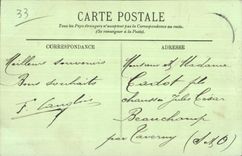 33
CARTE POSTALE
Tous les Pays étrangers n'acceptent pas la Correspondance au recto.
(Se renseigner à la Poste)
CORRESPONDANCE
ADRESSE
Meilleurs souvenirs
Bons souhaits
Monsieur et Madame
Cadot fils
chaussée Jules César
Beauchamp
par Taverny (S&O)